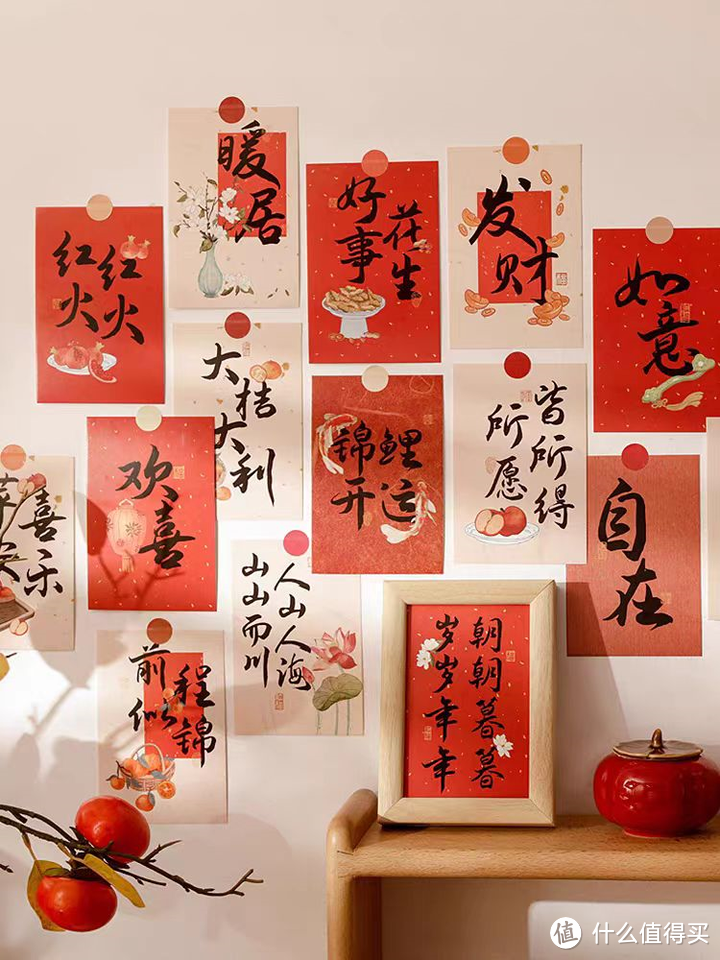 暖居
好事
花生
发财
红火
红火
如意
大桔
大利
锦鲤
开运
所愿
皆所得
欢喜
自在
喜乐
人山人海
山山而川
前程
似锦
朝朝暮暮
岁岁年年
值 什么值得买